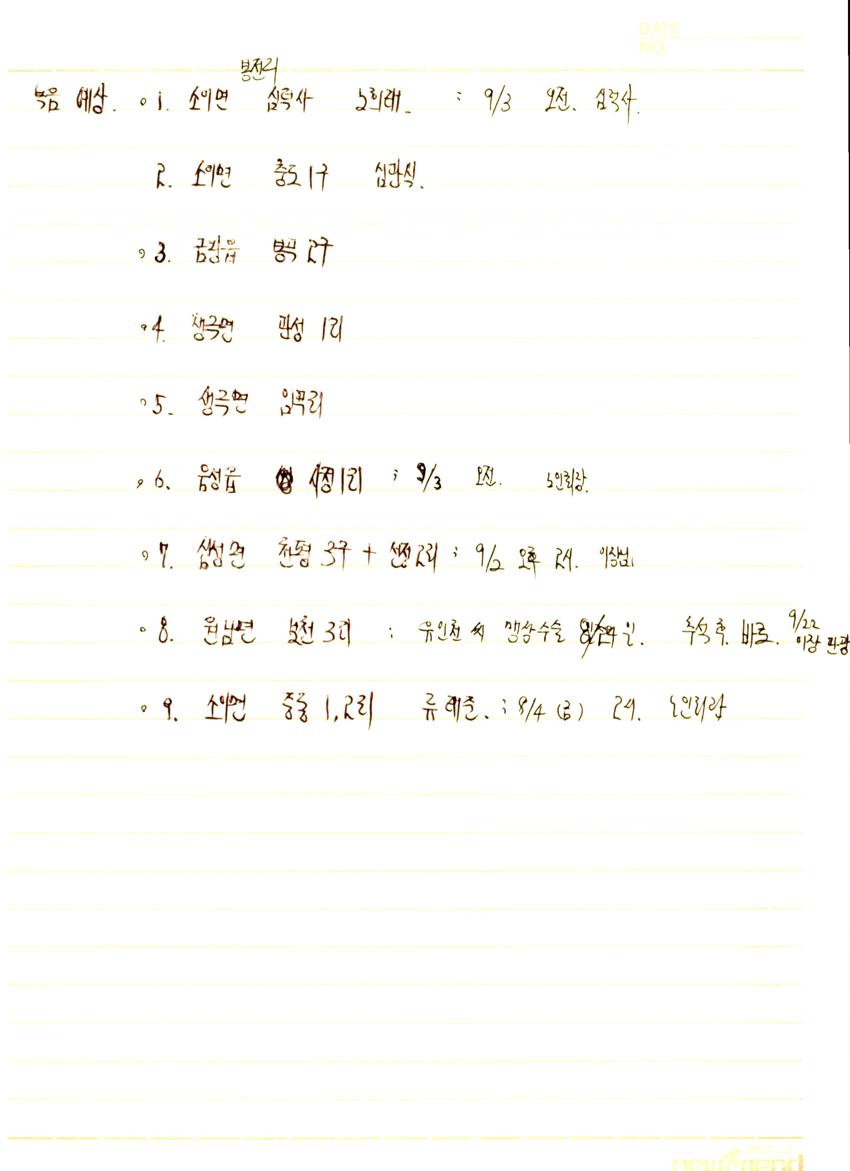 DATE
NO.
봉전리
녹음 예상. 1. 소이면 심력사 노희래. : 9/3 오전. 심력사.
2. 소이면 충도 1구 심관식.
3. 금왕읍 봉곡 2구
4. 생극면 관성 1리
5. 생극면 임곡리
6. 음성읍 사정1리 ; 9/3 오전. 노인회장.
7. 삼성면 천평 3구 + 선정2리 : 9/2 오후 2시. 이장님.
8. 원남면 보천 3리 : 유인천 씨 맹장수술 일. 추석 후. 바로. 9/22
이장 관광
9. 소이면 중동 1, 2리 류래춘. ; 9/4 (금) 2시. 노인회장